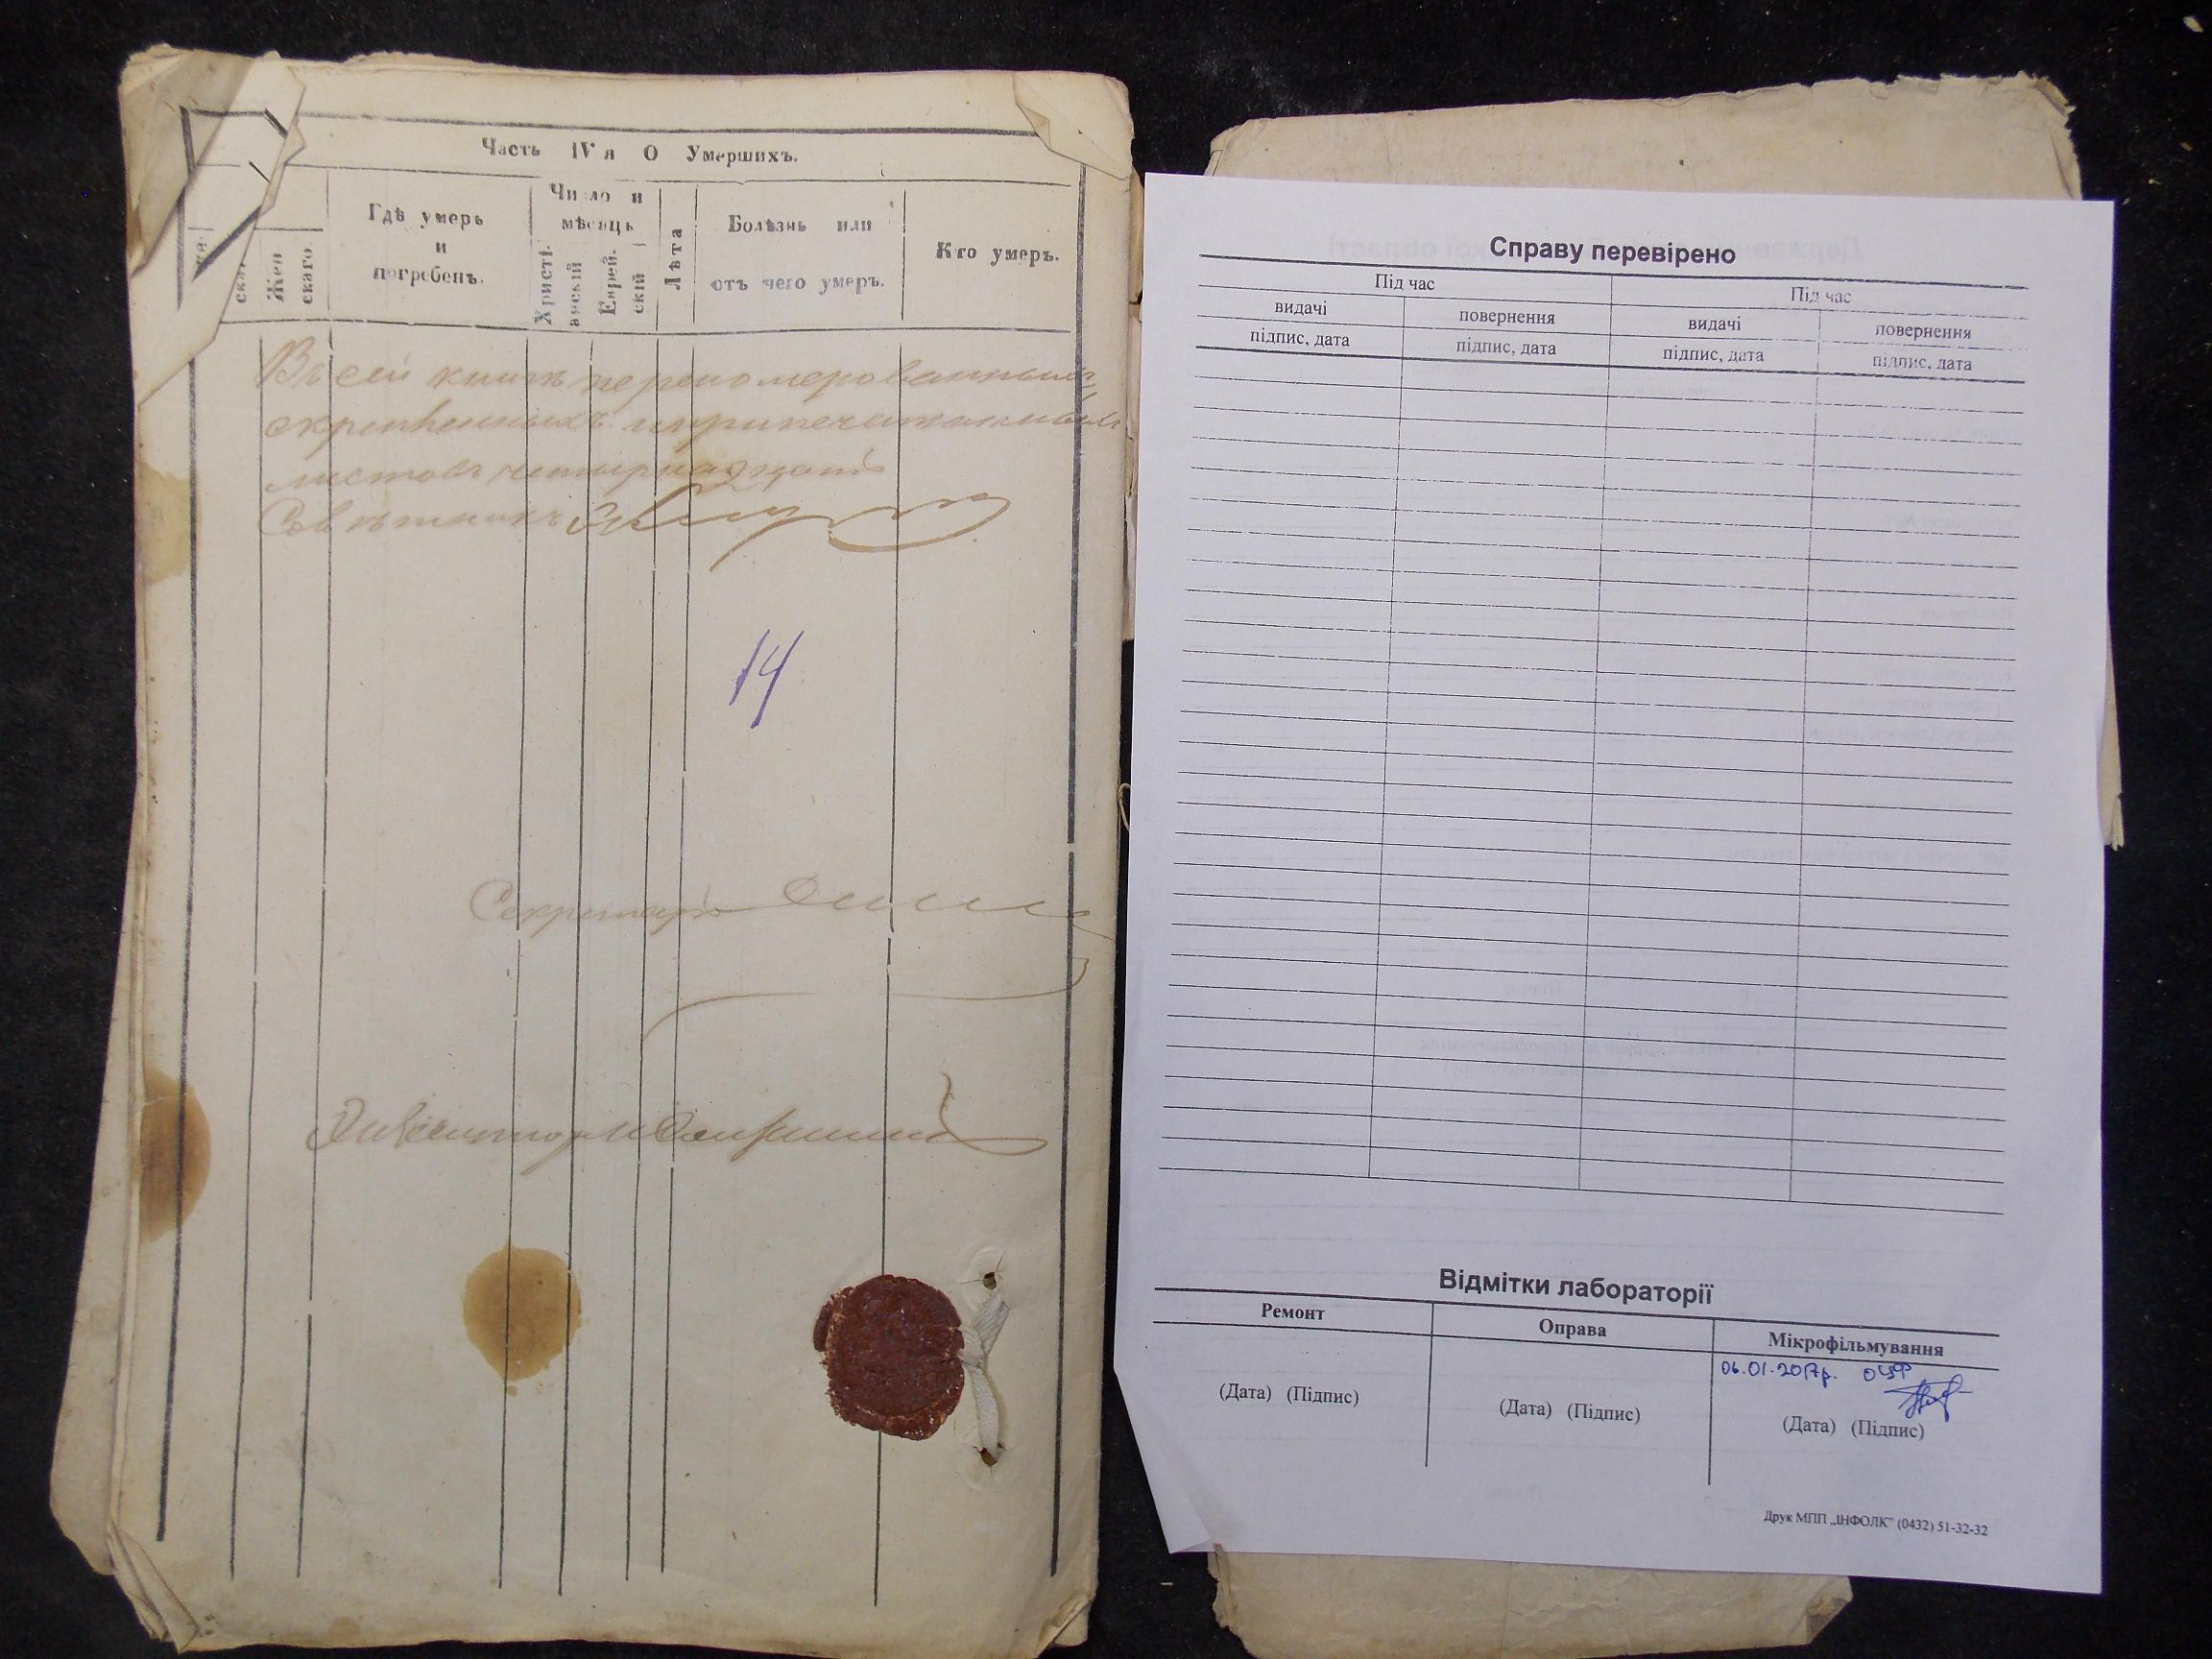 Часть IVя О Умершихъ.
скаго
Жен
скаго.
Гдѣ умеръ
и
погребенъ.
Число и
мѣсяцъ
Христі-
анскій
Еврей-
скій
Лѣта
Болѣзнь или
отъ чего умеръ.
Кто умеръ.
Въ сей книгѣ перепомерованныхъ
скрѣпленныхъ и припечатанныхъ
листовъ четырнадцать
Совѣтникъ
14
Секретарь
Справу перевірено
Під час
Під час
видачі
повернення
видачі
повернення
підпис, дата
підпис, дата
підпис, дата
підпис, дата
Відмітки лабораторії
Ремонт
Оправа
Мікрофільмування
06.01.2017р. ОЦФ
(Дата) (Підпис)
(Дата) (Підпис)
(Дата) (Підпис)
Друк МПП „ІНФОЛК” (0432) 51-32-32